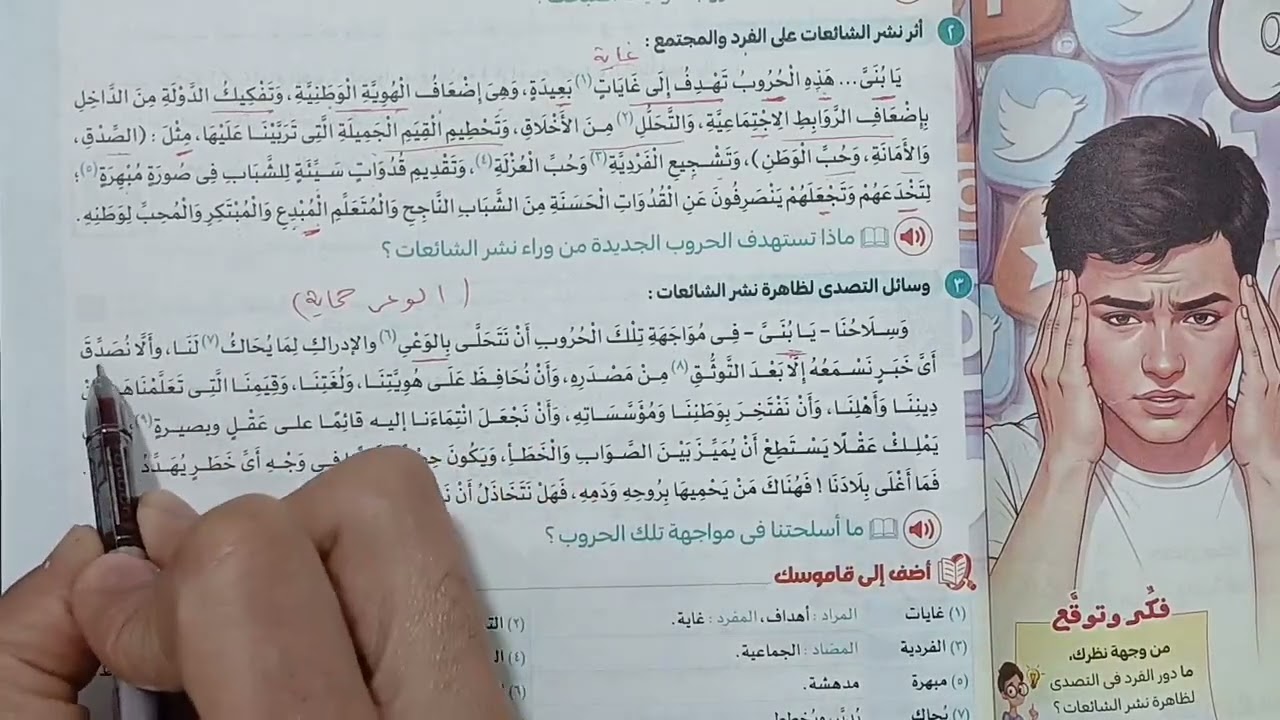 ٢ أثر نشر الشائعات على الفرد والمجتمع :
غاية
يَا بُنَىَّ... هَذِهِ الْحُرُوبُ تَهْدِفُ إِلَى غَايَاتٍ (١) بَعِيدَةٍ، وَهِىَ إِضْعَافُ الْهُوِيَّةِ الْوَطَنِيَّةِ، وَتَفْكِيكُ الدَّوْلَةِ مِنَ الدَّاخِلِ
بِإِضْعَافِ الرَّوَابِطِ الِاجْتِمَاعِيَّةِ، وَالتَّحَلُّلِ (٢) مِنَ الْأَخْلَاقِ، وَتَحْطِيمِ الْقِيَمِ الْجَمِيلَةِ الَّتِى تَرَبَّيْنَا عَلَيْهَا، مِثْلَ : (الصِّدْقِ،
وَالْأَمَانَةِ، وَحُبِّ الْوَطَنِ)، وَتَشْجِيعِ الْفَرْدِيَّةِ (٣) وَحُبِّ الْعُزْلَةِ (٤)، وَتَقْدِيمِ قُدُوَاتٍ سَيِّئَةٍ لِلشَّبَابِ فِى صُورَةٍ مُبْهِرَةٍ (٥) ؛
لِتَخْدَعَهُمْ وَتَجْعَلَهُمْ يَنْصَرِفُونَ عَنِ الْقُدُوَاتِ الْحَسَنَةِ مِنَ الشَّبَابِ النَّاجِحِ وَالْمُتَعَلِّمِ الْمُبْدِعِ وَالْمُبْتَكِرِ وَالْمُحِبِّ لِوَطَنِهِ.
ماذا تستهدف الحروب الجديدة من وراء نشر الشائعات ؟
٣ وسائل التصدى لظاهرة نشر الشائعات :
وَسِلَاحُنَا - يَا بُنَىَّ - فِى مُوَاجَهَةِ تِلْكَ الْحُرُوبِ أَنْ نَتَحَلَّى بِالوَعْىِ (٦) والإدراكِ لِمَا يُحَاكُ (٧) لَنَا، وَأَلَّا نُصَدِّقَ
أَىَّ خَبَرٍ نَسْمَعُهُ إِلَّا بَعْدَ التَّوثُّقِ (٨) مِنْ مَصْدَرِهِ، وَأَنْ نُحَافِظَ عَلَى هُوِيَّتِنَا، وَلُغَتِنَا، وَقِيَمِنَا الَّتِى تَعَلَّمْنَاهَا
دِينِنَا وَأَهْلِنَا، وَأَنْ نَفْتَخِرَ بِوَطَنِنَا وَمُؤَسَّسَاتِهِ، وَأَنْ نَجْعَلَ انْتِمَاءَنَا إليه قائِمًا على عَقْلٍ وبصيرةٍ (٩)
يَمْلِكْ عَقْلًا يَسْتَطِعْ أَنْ يُمَيِّزَ بَيْنَ الصَّوَابِ وَالْخَطَأِ، وَيَكُونَ فِى وَجْهِ أَىِّ خَطَرٍ
فَمَا أَغْلَى بِلَادَنَا ! فَهُنَاكَ مَنْ يَحْمِيهَا بِرُوحِهِ وَدَمِهِ، فَهَلْ نَتَخَاذَلُ أَنْ
ما أسلحتنا فى مواجهة تلك الحروب ؟
أضف إلى قاموسك
(١) غايات المراد : أهداف، المفرد : غاية. (٢)
(٣) الفردية المضاد : الجماعية. (٤)
(٥) مبهرة مدهشة. (٦)
(٧) يُحاك
فكِّر وتوقَّع
من وجهة نظرك،
ما دور الفرد فى التصدى
لظاهرة نشر الشائعات ؟